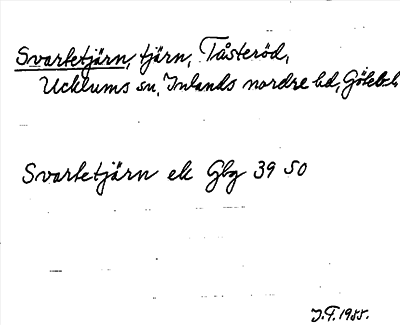 Svartetjärn, tjärn, Tåsteröd,
Ucklums sn, Inlands nordre hd, Göteb.l.
Svartetjärn ek Gbg 39 50
J.F. 1955.